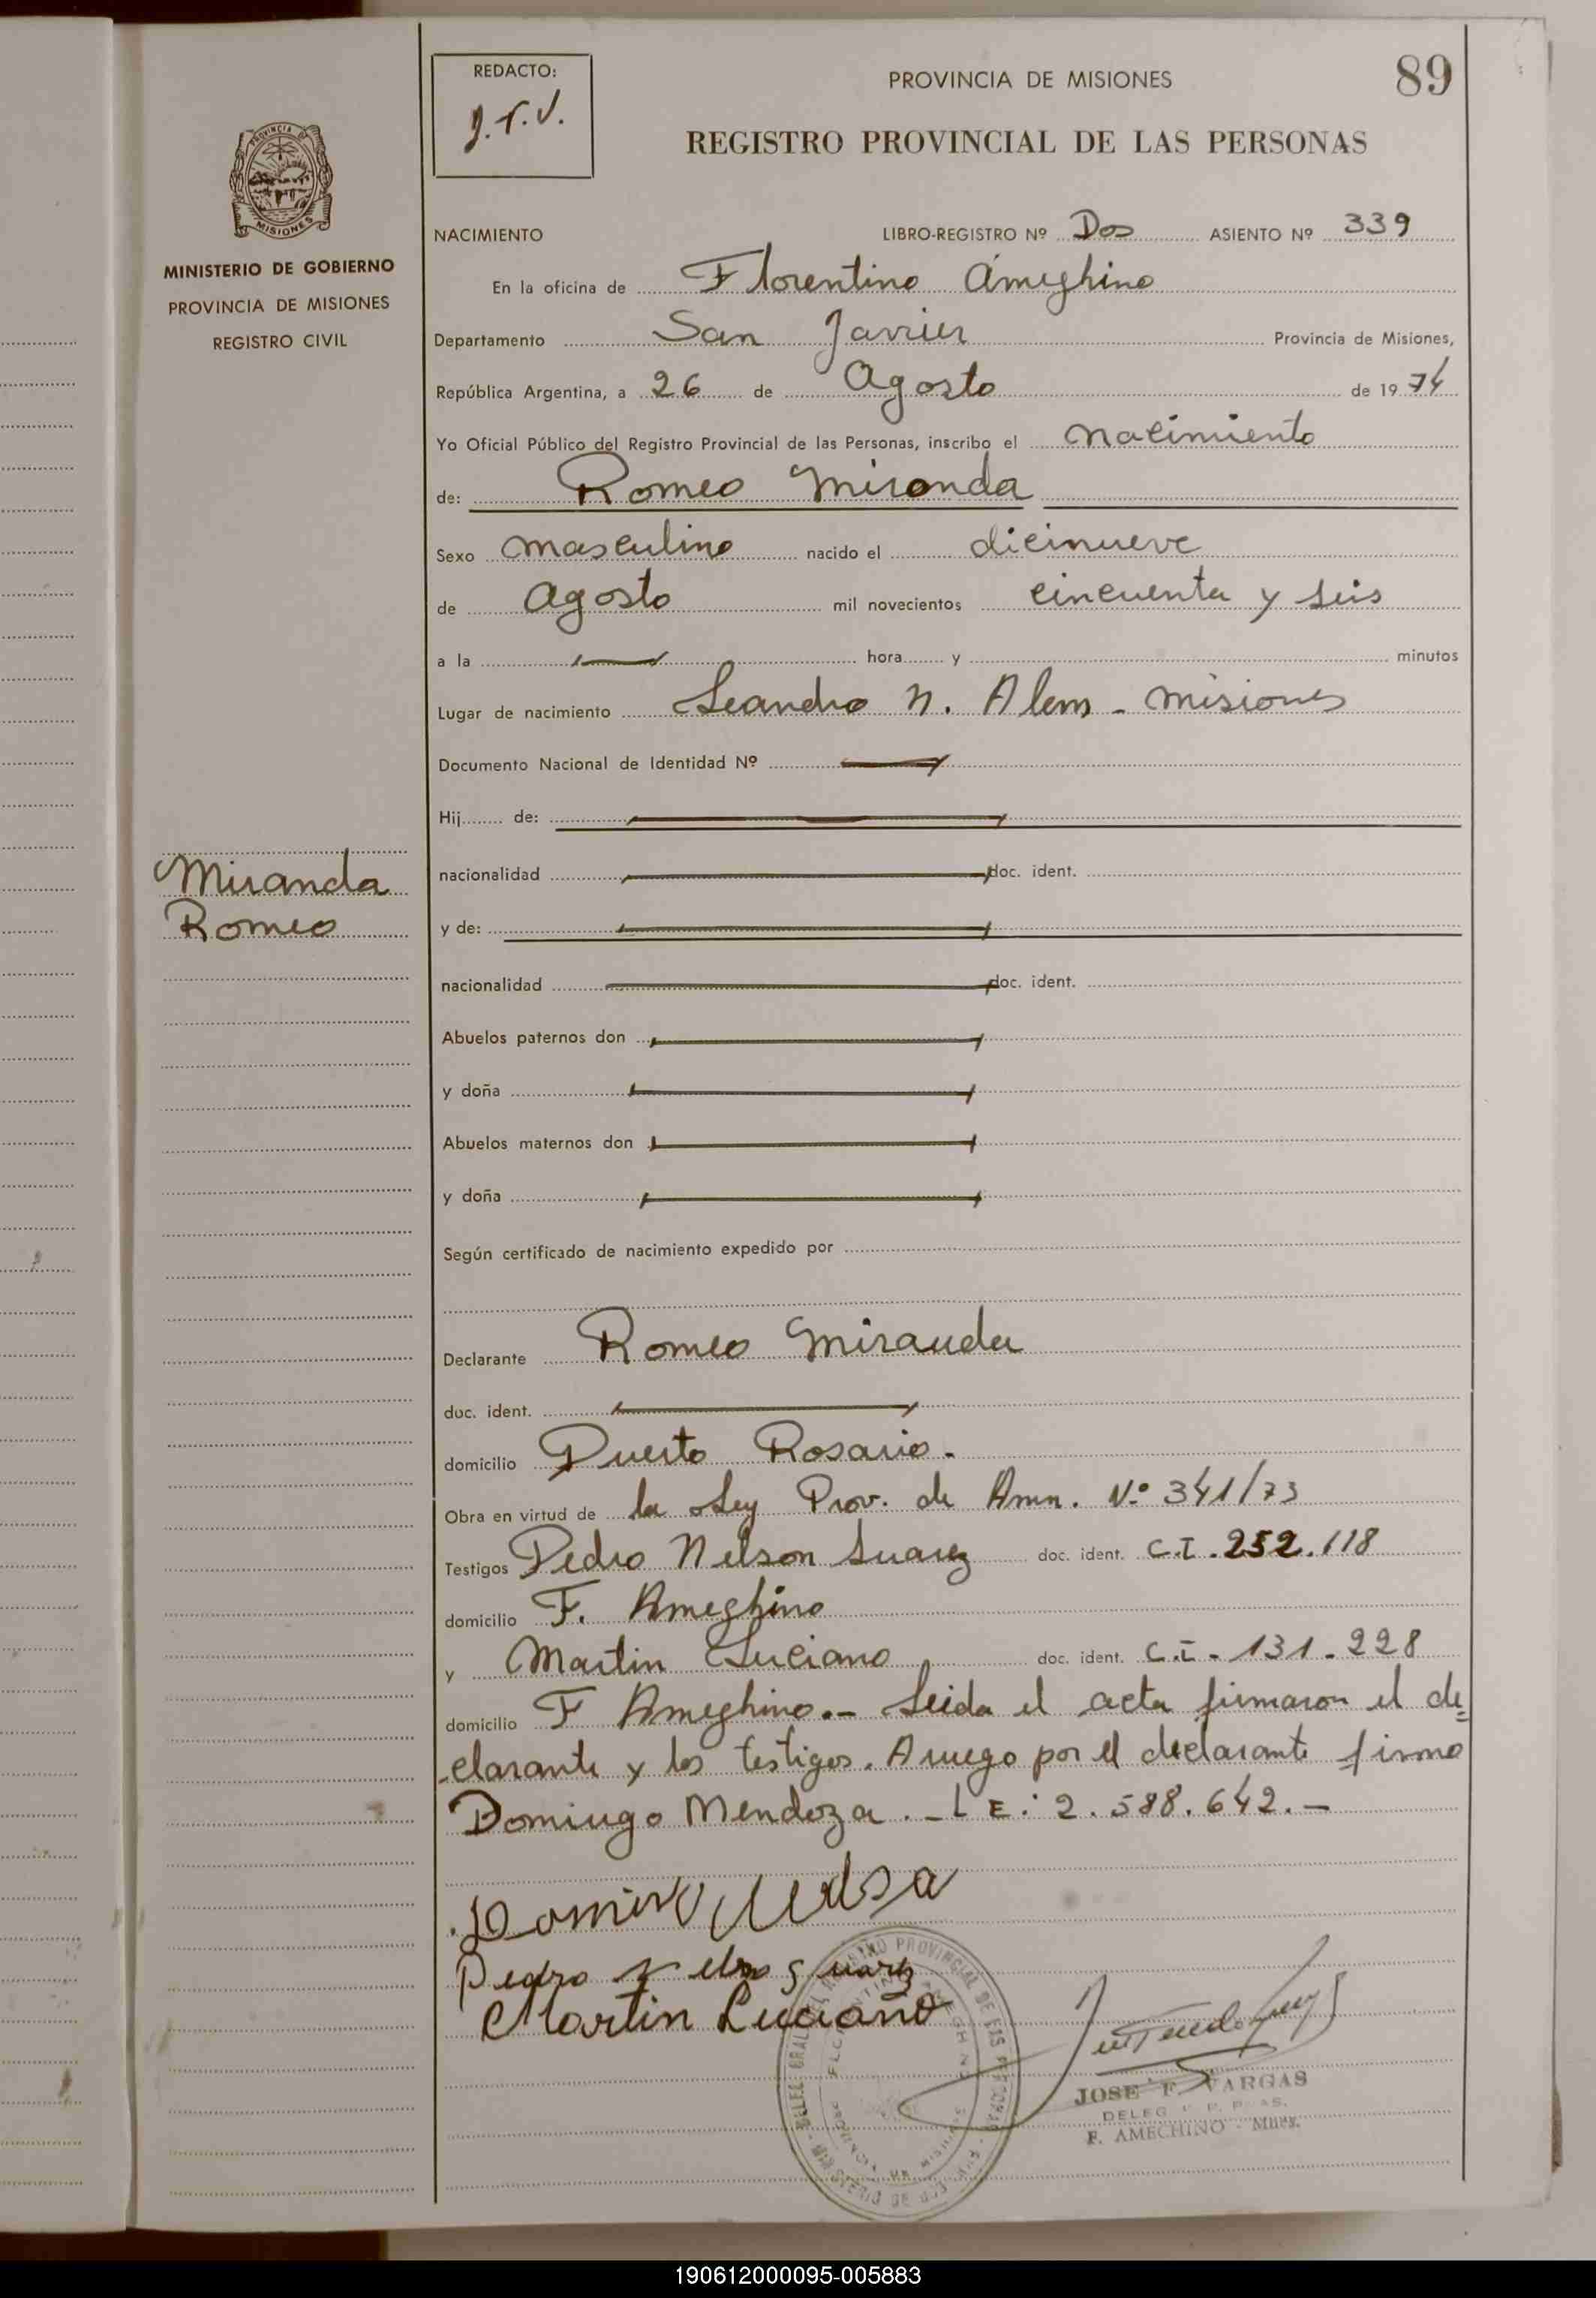 REDACTO:
J.F.V.
PROVINCIA DE MISIONES
89
REGISTRO PROVINCIAL DE LAS PERSONAS
MISIONES
MINISTERIO DE GOBIERNO
PROVINCIA DE MISIONES
REGISTRO CIVIL
NACIMIENTO LIBRO-REGISTRO Nº Dos ASIENTO Nº 339
En la oficina de Florentino Ameghino
Departamento San Javier Provincia de Misiones,
República Argentina, a 26 de Agosto de 1974
Yo Oficial Público del Registro Provincial de las Personas, inscribo el nacimiento
de: Romeo Miranda
Sexo masculino nacido el dicinueve
de Agosto mil novecientos cincuenta y seis
a la hora y minutos
Lugar de nacimiento Leandro N. Alem - Misiones
Documento Nacional de Identidad Nº
Hij de:
Miranda
Romeo
nacionalidad doc. ident.
y de:
nacionalidad doc. ident.
Abuelos paternos don
y doña
Abuelos maternos don
y doña
Según certificado de nacimiento expedido por
Declarante Romeo Miranda
doc. ident.
domicilio Puerto Rosario.
Obra en virtud de la Ley Prov. de Amn. Nº 341/73
Testigos Pedro Nelson Suarez doc. ident. C.I. 252.118
domicilio F. Ameghino
y Martin Luciano doc. ident. C.I. 131.228
domicilio F Ameghino.- Leida el acta firmaron el de=
clarante y los testigos. A ruego por el declarante firma
Domingo Mendoza.- L E: 2.588.642.-
Martin Luciano
JOSE F. VARGAS
F. AMEGHINO - Mnes.
190612000095-005883